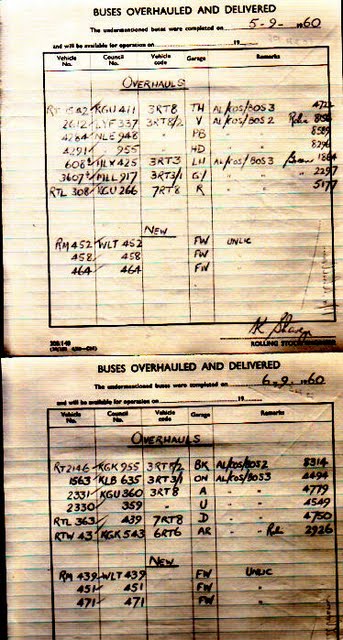 BUSES OVERHAULED AND DELIVERED
The undermentioned buses were completed on 5-9- 1960
and will be available for operation on 19
Vehicle No. Council No. Vehicle code Garage Remarks
OVERHAULS
RT 1582 KGU 411 3RT8 TH AL/KOS/BOS3 4722
2612 LYF 337 3RT8/2 V AL/KOS/BOS 2
4284 NLE 948 " PB " " 8589
4291 " 955 " HD " " 8296
608 HLX 425 3RT3 LH AL/KOS/BOS 3 1864
3607 MLL 917 3RT3/1 " " 2297
RTL 308 KGU 266 7RT8 R " " 5177
NEW
RM 452 WLT 452 FW UNLIC
458 458 FW "
464 464 FW "
ROLLING STOCK ENGINEER
BUSES OVERHAULED AND DELIVERED
The undermentioned buses were completed on 6-9- 1960
and will be available for operation on 19
Vehicle No. Council No. Vehicle code Garage Remarks
OVERHAULS
RT 2146 KGK 955 3RT8/2 BK AL/KOS/BOS2 8314
1563 KLB 635 3RT3/1 ON AL/KOS/BOS3 4494
2331 KGU 360 3RT8 A " " 4779
2330 359 " U " " 4549
RTL 363 439 7RT8 D " " 4750
RTW 43 KGK 543 6RT6 AR " " 2926
NEW
RM 439 WLT 439 FW UNLIC
451 451 FW "
471 471 FW "